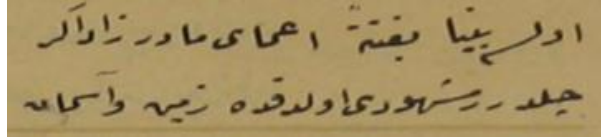 اولسه بینا بغتةً اعمای مادرزاد اگر
جیلدر مشهودی اولدقده زمین و آسمان